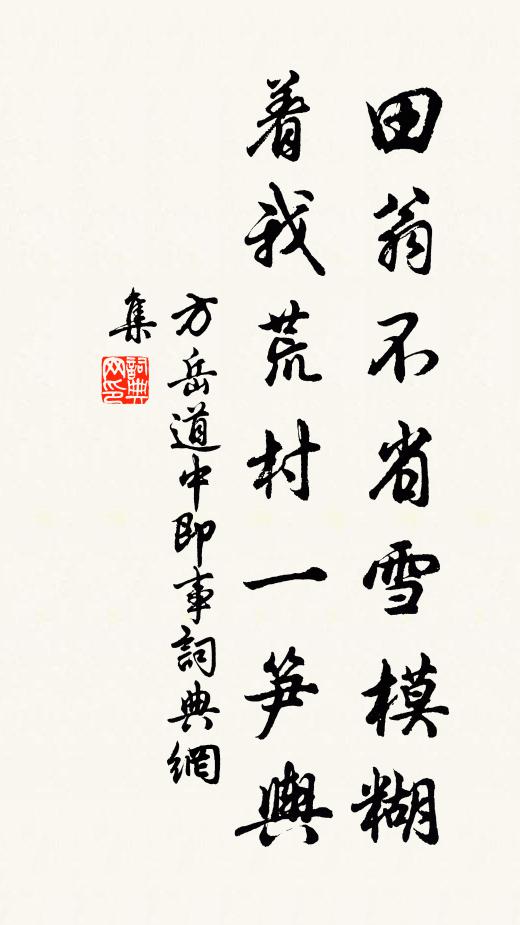 田翁不省雪模糊
着我荒村一笋輿
方岳道中即事詞典網
集
詞典
网印